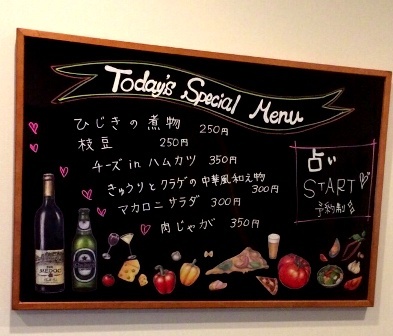 Today's Special Menu
ひじきの煮物 250円
枝豆 250円
チーズ in ハムカツ 350円
きゅうりとクラゲの中華風和え物 300円
マカロニサラダ 300円
肉じゃが 350円
占い
START
予約制
MEDOC